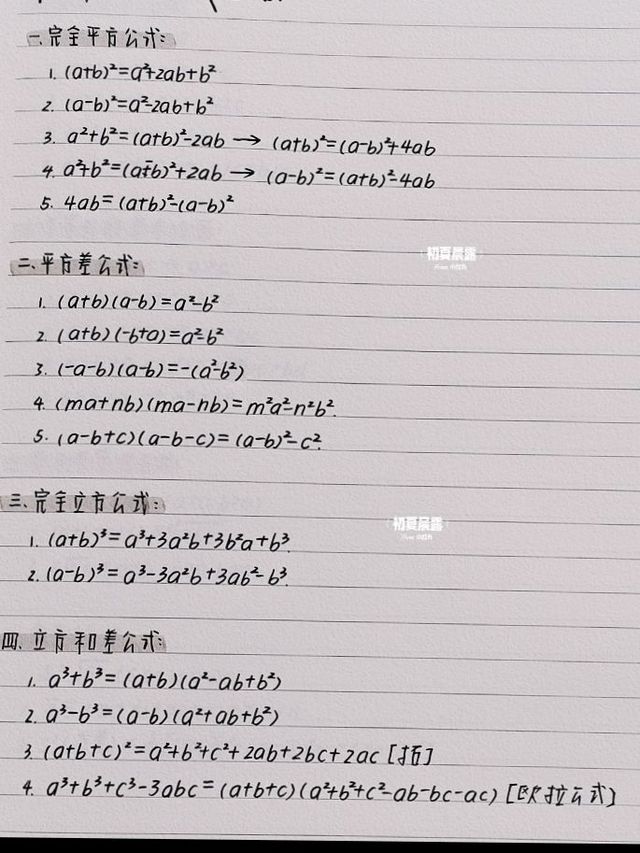 一.完全平方公式:
1. (a+b)²=a²+2ab+b²
2. (a-b)²=a²-2ab+b²
3. a²+b²=(a+b)²-2ab → (a+b)²=(a-b)²+4ab
4. a²+b²=(a-b)²+2ab → (a-b)²=(a+b)²-4ab
5. 4ab=(a+b)²-(a-b)²
初夏晨露
二.平方差公式:
1. (a+b)(a-b)=a²-b²
2. (a+b)(-b+a)=a²-b²
3. (-a-b)(a-b)=-(a²-b²)
4. (ma+nb)(ma-nb)=m²a²-n²b².
5. (a-b+c)(a-b-c)=(a-b)²-c².
三.完全立方公式:
初夏晨露
1. (a+b)³=a³+3a²b+3b²a+b³.
2. (a-b)³=a³-3a²b+3ab²-b³.
四.立方和差公式:
1. a³+b³=(a+b)(a²-ab+b²)
2. a³-b³=(a-b)(a²+ab+b²)
3. (a+b+c)²=a²+b²+c²+2ab+2bc+2ac [拓]
4. a³+b³+c³-3abc=(a+b+c)(a²+b²+c²-ab-bc-ac) [欧拉公式]